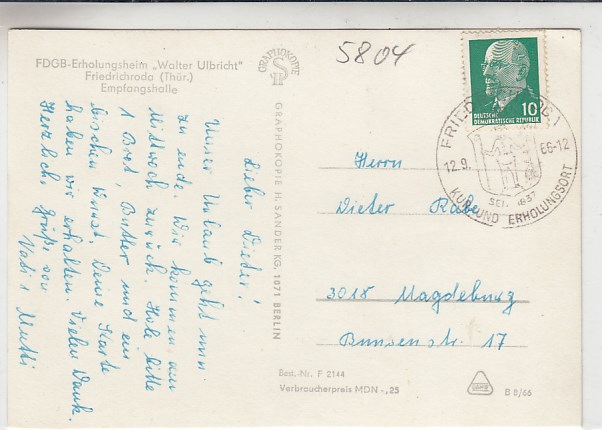 FDGB-Erholungsheim „Walter Ulbricht"
Friedrichroda (Thür.)
Empfangshalle
Lieber Dieter!
Unser Urlaub geht nun
zu ende. Wir kommen am
Mittwoch zurück. Hole bitte
1 Brot, Butter und ein
bischen Wurst. Deine Karte
haben wir erhalten. Vielen Dank.
Herzlich. Grüße von
Vati u. Mutti
GRAPHOKOPIE
GRAPHOKOPIE H. SANDER KG. 1071 BERLIN
5804
10
DEUTSCHE
DEMOKRATISCHE REPUBLIK
12.9.
66-12
SEIT 1837
KUR UND ERHOLUNGSORT
Herrn
Dieter Rabe
3018 Magdeburg
Bunsenstr. 17
Best.-Nr. F 2144
Verbraucherpreis MDN -,25
B 8/66